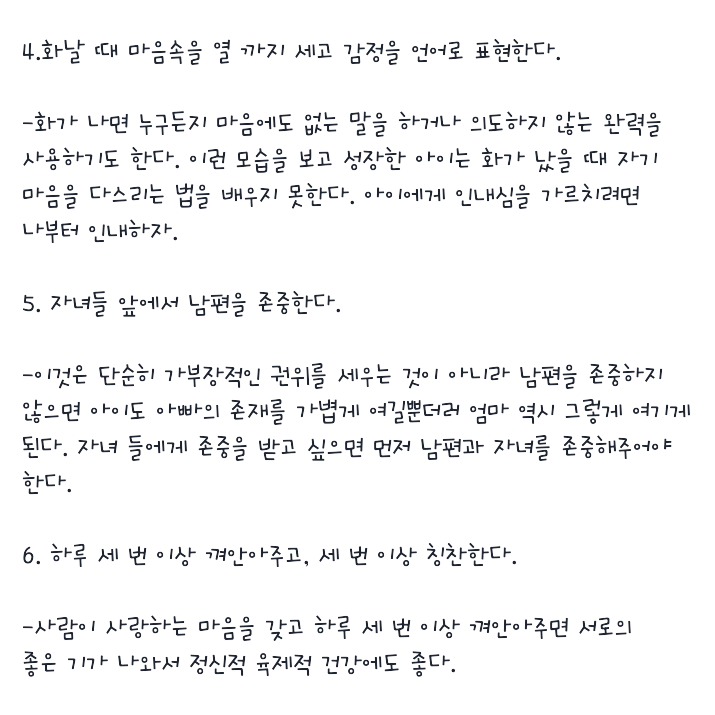 4.화날 때 마음속을 열 까지 세고 감정을 언어로 표현한다.
-화가 나면 누구든지 마음에도 없는 말을 하거나 의도하지 않는 완력을
사용하기도 한다. 이런 모습을 보고 성장한 아이는 화가 났을 때 자기
마음을 다스리는 법을 배우지 못한다. 아이에게 인내심을 가르치려면
나부터 인내하자.
5. 자녀들 앞에서 남편을 존중한다.
-이것은 단순히 가부장적인 권위를 세우는 것이 아니라 남편을 존중하지
않으면 아이도 아빠의 존재를 가볍게 여길뿐더러 엄마 역시 그렇게 여기게
된다. 자녀 들에게 존중을 받고 싶으면 먼저 남편과 자녀를 존중해주어야
한다.
6. 하루 세 번 이상 껴안아주고, 세 번 이상 칭찬한다.
-사람이 사랑하는 마음을 갖고 하루 세 번 이상 껴안아주면 서로의
좋은 기가 나와서 정신적 육제적 건강에도 좋다.